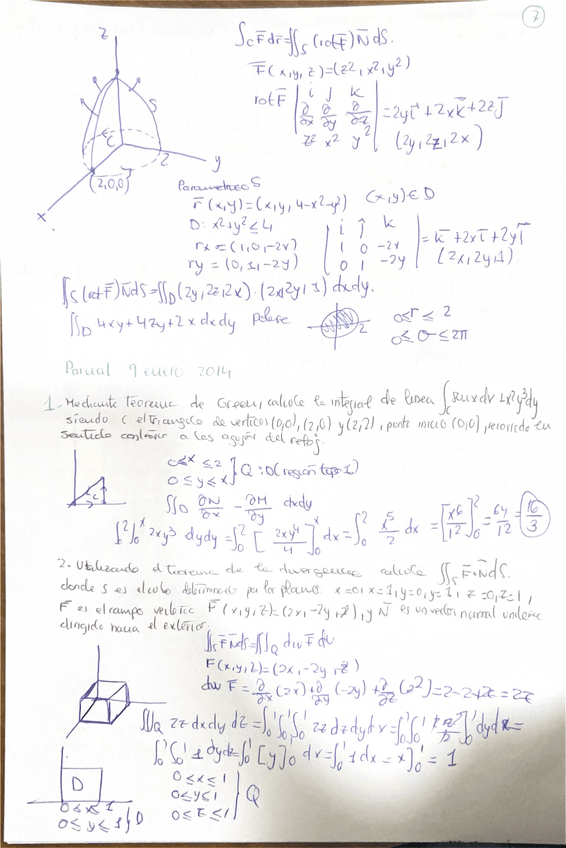 7
z
∫_C F̄ dr̄ = ∬_S (rot F̄) N̄ dS.
F̄(x,y,z) = (z², x², y²)
rot F̄ | i j k |
| ∂/∂x ∂/∂y ∂/∂z | = 2yī + 2xk̄ + 2zj̄
| z² x² y² | (2y, 2z, 2x)
S
C
2
y
(2,0,0)
x
Parametrizo S
r̄(x,y) = (x, y, 4-x²-y²) (x,y) ∈ D
D: x²+y² ≤ 4
rx = (1, 0, -2x)
ry = (0, 1, -2y)
| i j k |
| 1 0 -2x | = k̄ + 2xī + 2yj̄
| 0 1 -2y | (2x, 2y, 1)
∬_S (rot F̄) N̄ dS = ∬_D (2y, 2z, 2x) · (2x, 2y, 1) dxdy.
∬_D 4xy + 4zy + 2x dxdy polares
2
0 ≤ r ≤ 2
0 ≤ θ ≤ 2π
Parcial 9 enero 2014
1. Mediante teorema de Green, calcule la integral de línea ∫_C senx dx + x²y³ dy
siendo C el triángulo de vertices (0,0), (2,0) y (2,2), parte inicio (0,0), recorrido en
sentido contrario a las agujas del reloj.
0 ≤ x ≤ 2
0 ≤ y ≤ x } Q : D (región tipo I)
C
∬_D ∂N/∂x - ∂M/∂y dxdy
∫₀² ∫₀ˣ 2xy³ dydy = ∫₀² [2xy⁴/4]₀ˣ dx = ∫₀² x⁵/2 dx = [x⁶/12]₀² = 64/12 = 16/3
2. Utilizando el teorema de la divergencia calcule ∬_S F̄·N̄ dS.
donde S es el cubo determinado por los planos x=0, x=1, y=0, y=1, z=0, z=1,
F̄ es el campo vectorial F̄(x,y,z) = (2x, -2y, z²), y N̄ es un vector normal unitario
dirigido hacia el exterior.
∬_S F̄ N̄ dS = ∭_Q div F̄ dv
F(x,y,z) = (2x, -2y, z²)
div F̄ = ∂/∂x (2x) + ∂/∂y (-2y) + ∂/∂z (z²) = 2-2+2z = 2z
∭_Q 2z dxdydz = ∫₀¹ ∫₀¹ ∫₀¹ 2z dzdydx = ∫₀¹ ∫₀¹ [2z²/2]₀¹ dydx =
∫₀¹ ∫₀¹ 1 dydx = ∫₀¹ [y]₀¹ dx = ∫₀¹ 1 dx = x]₀¹ = 1
D
0 ≤ x ≤ 1
0 ≤ y ≤ 1 } D
0 ≤ x ≤ 1
0 ≤ y ≤ 1
0 ≤ z ≤ 1 } Q